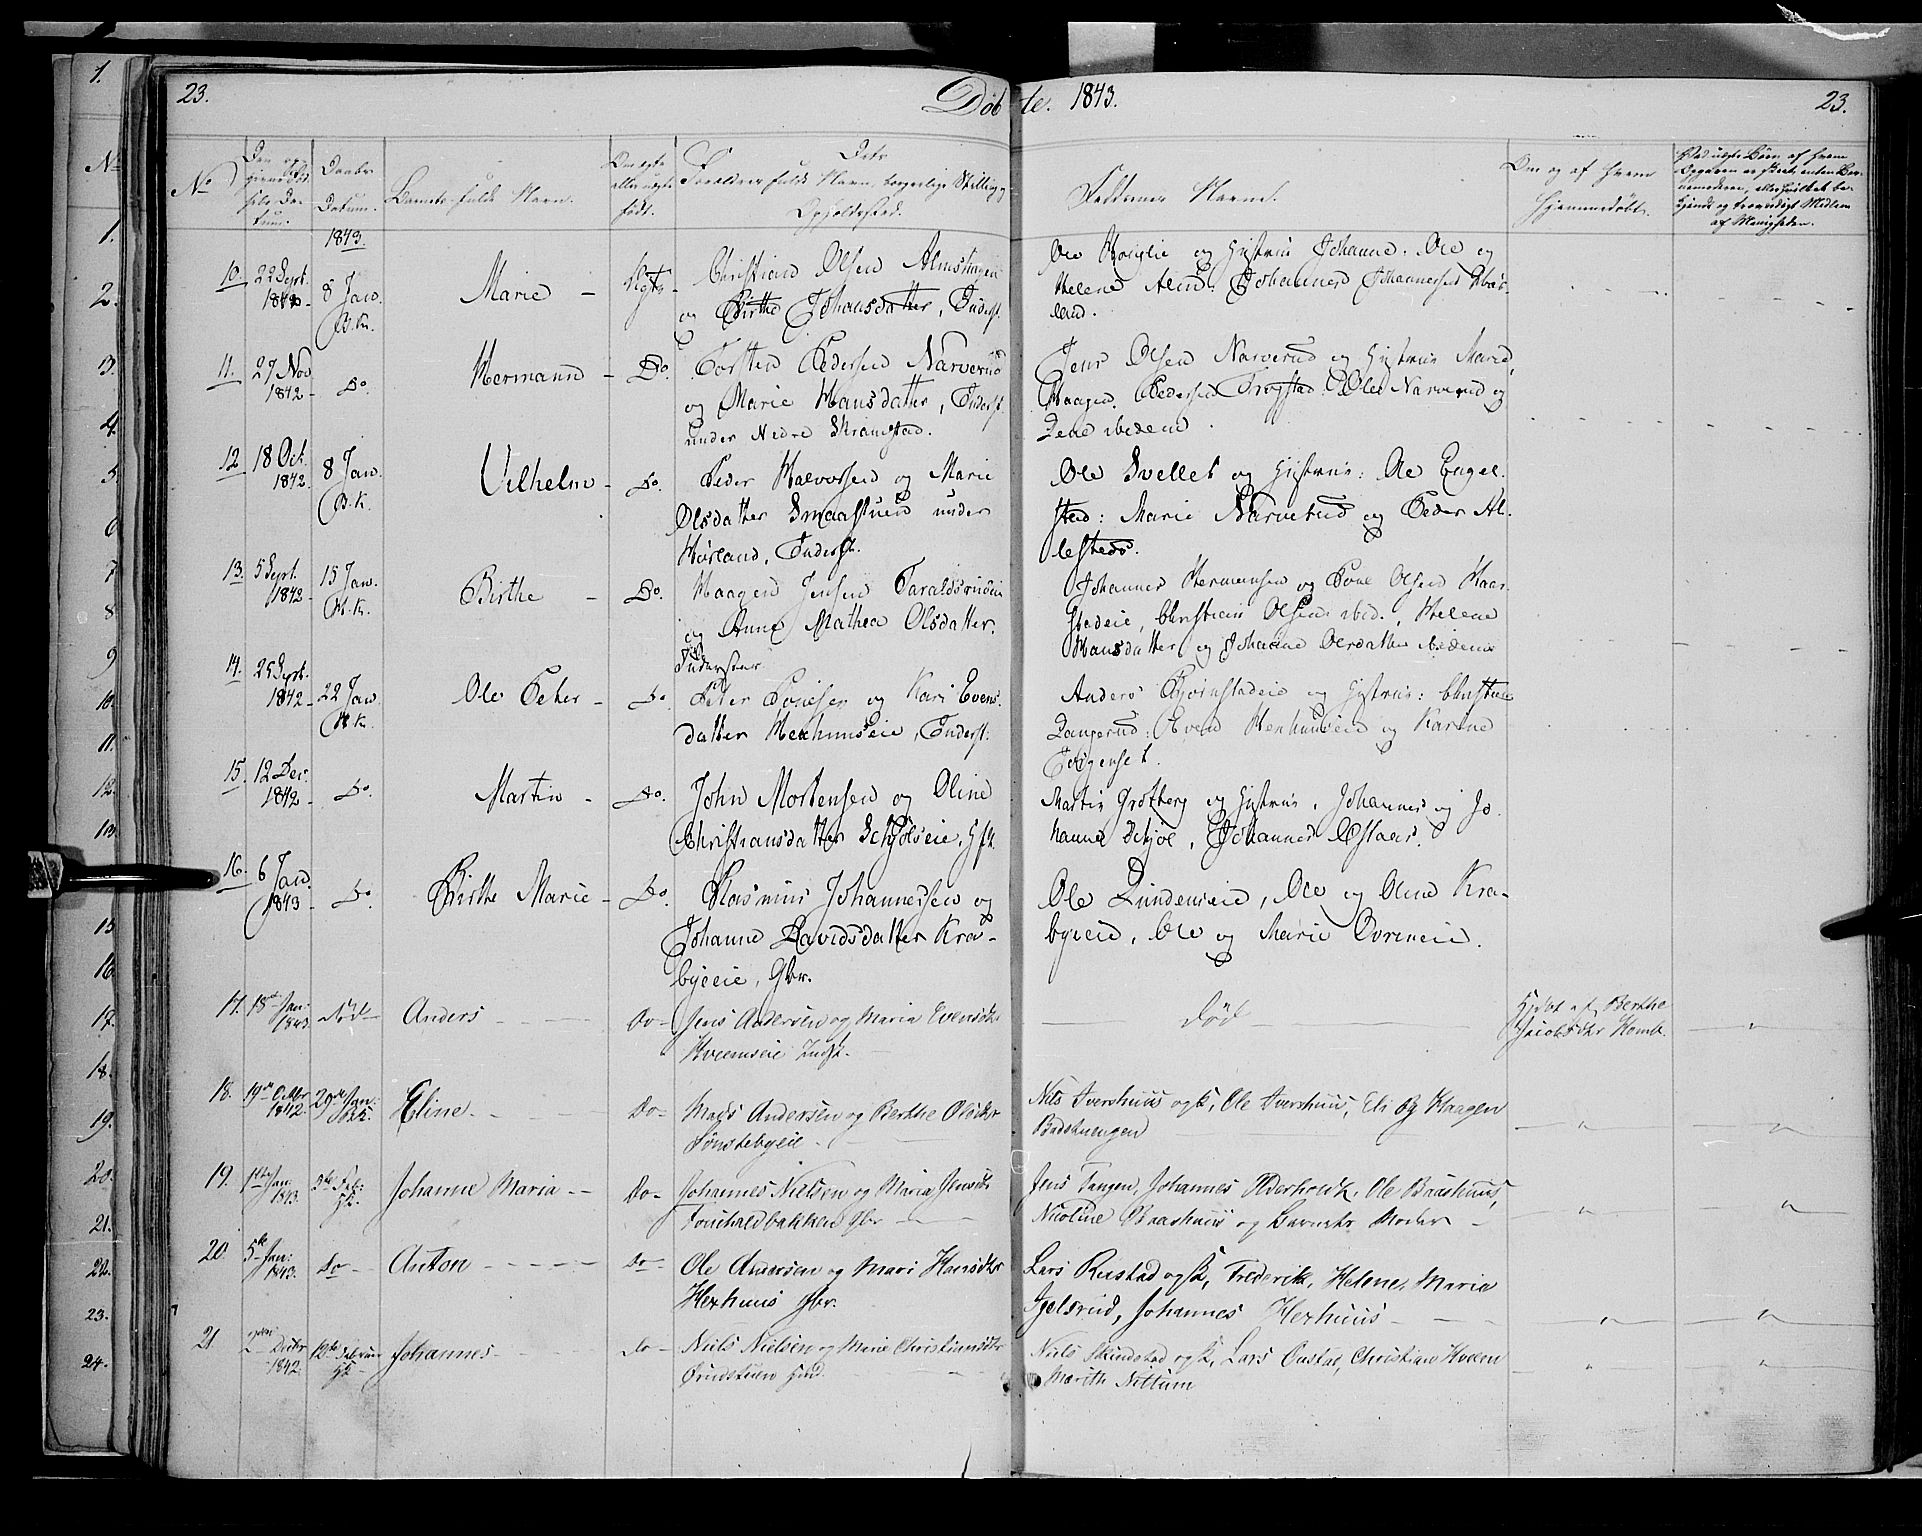 23. Døbte. 1843. 23.
No
Daabs Datum.
Barnets fulde Navn.
Om ægte eller uægte født.
Forældres fulde Navn, borgerlige Stilling og Opholdssted.
Faddernes Navne.
Om og af hvem hjemmedøbt.
1843.
10. 22 Sept. 1842 - 8 Jan. B.K. Marie - Ægte - Christian Olsen Almshagen
og Birthe Johansdatter, Inderst.
Ole og Hustrue Johanne. Ole og
Helene Alm: Johannes Johannesen
land.
11. 27 Nov 1842 - Do. Hermann - Do. Torsten Pedersen Narverud
og Marie Hansdatter, Inderst.
under Nedre Skramstad.
Jens Olsen Narverud og Hustrue Marie,
Haagen Pedersen Trogstad: Ole Narverud og
Lene ibidem.
12 18 Oct. 1842. 8 Jan. B.K. Vilhelm - Do. Peder Halvorsen og Marie
Olsdatter Smaastuen under
Hørland, Inderst.
Ole Svellet og Hustrue: Ole Engel-
stad: Marie Narverud og Peder Al-
lesteds.
13. 5 Sept. 1842 - 15 Jan. H.K. Birthe - Do. Haagen Jensen Taraldsrudeie
og Anne Mathea Olsdatter.
Inderster
Johannes Hermansen og Poul Olsen Kaar-
stadeie, Christian Olsen ibid., Helene
Hansdatter og Johanne Olesdatter ibidem
14. 25 Sept. 1842 - 22 Jan. H.K. Ole Peter - Do. Peter Povelsen og Kari Evens-
datter Hexhuuseie, Inderst.
Anders Bjørnstadeie og Hustrue: Christian
Langerud: Even Hexhuuseie og Karine
15. 12 Dec. 1842 - Do. Martin - Do. John Mortensen og Oline
Christiansdatter Schjølseie,
Martin Grøtberg og Hustrue, Johannes og Jo-
hanne Schjøl, Johannes Ofstaar.
16. 6 Jan. 1843 - Do. Birthe Marie - Do. Rasmus Johannesen og
Johanne Davidsdatter Kra-
byeeie, Gbr.
Ole Lundeneie, Ole og Oline Kra-
byeeie, Ole og Marie Ovreneie.
17. 18de Jan: 1843. død - Anders - Do - Jens Andersen og Maria Evensdtr
Kveemseie Indst. -
- død -
Hjdbt af Berthe
Jacobsdtr Komb.
18. 19de Octbr 1842. 29de Jan: Eline - Do - Mads Andersen og Berthe Olsdtr
Sønstebyeie -
Nils Ivershuus og K, Ole Ivershuus, Eli og Haagen
Badstuengen
19. 1ste Jan: 1843. 5te Feb: Johanne Maria - Do - Johannes Nielsen og Maria Jensdtr
Gbr -
Jens Tangen, Johannes Alderholdt, Ole Baashuus,
Nicoline Baashuus og Barnets Moder -
20. 5te Jan: 1843. Do - Anton - Do - Ole Andersen og Mari Hansdtr
Hexhuus Gbr.
Lars Rustad og K, Frederik, Helene, Maria
Igelsrud, Johannes Hexhuus -
21. 2den Decbr 1842. 12te Februar Johannes - Do - Niels Nielsen og Marie Christiansdtr
Niels Skundstad og K, Lars Onstad, Christian Hveem
Marith Nittum
1.
No
1.
2.
3.
4.
5.
6
7
8
9
10.
11.
12.
13.
15
16.
17.
18.
19.
20.
21.
22.
23.
24.